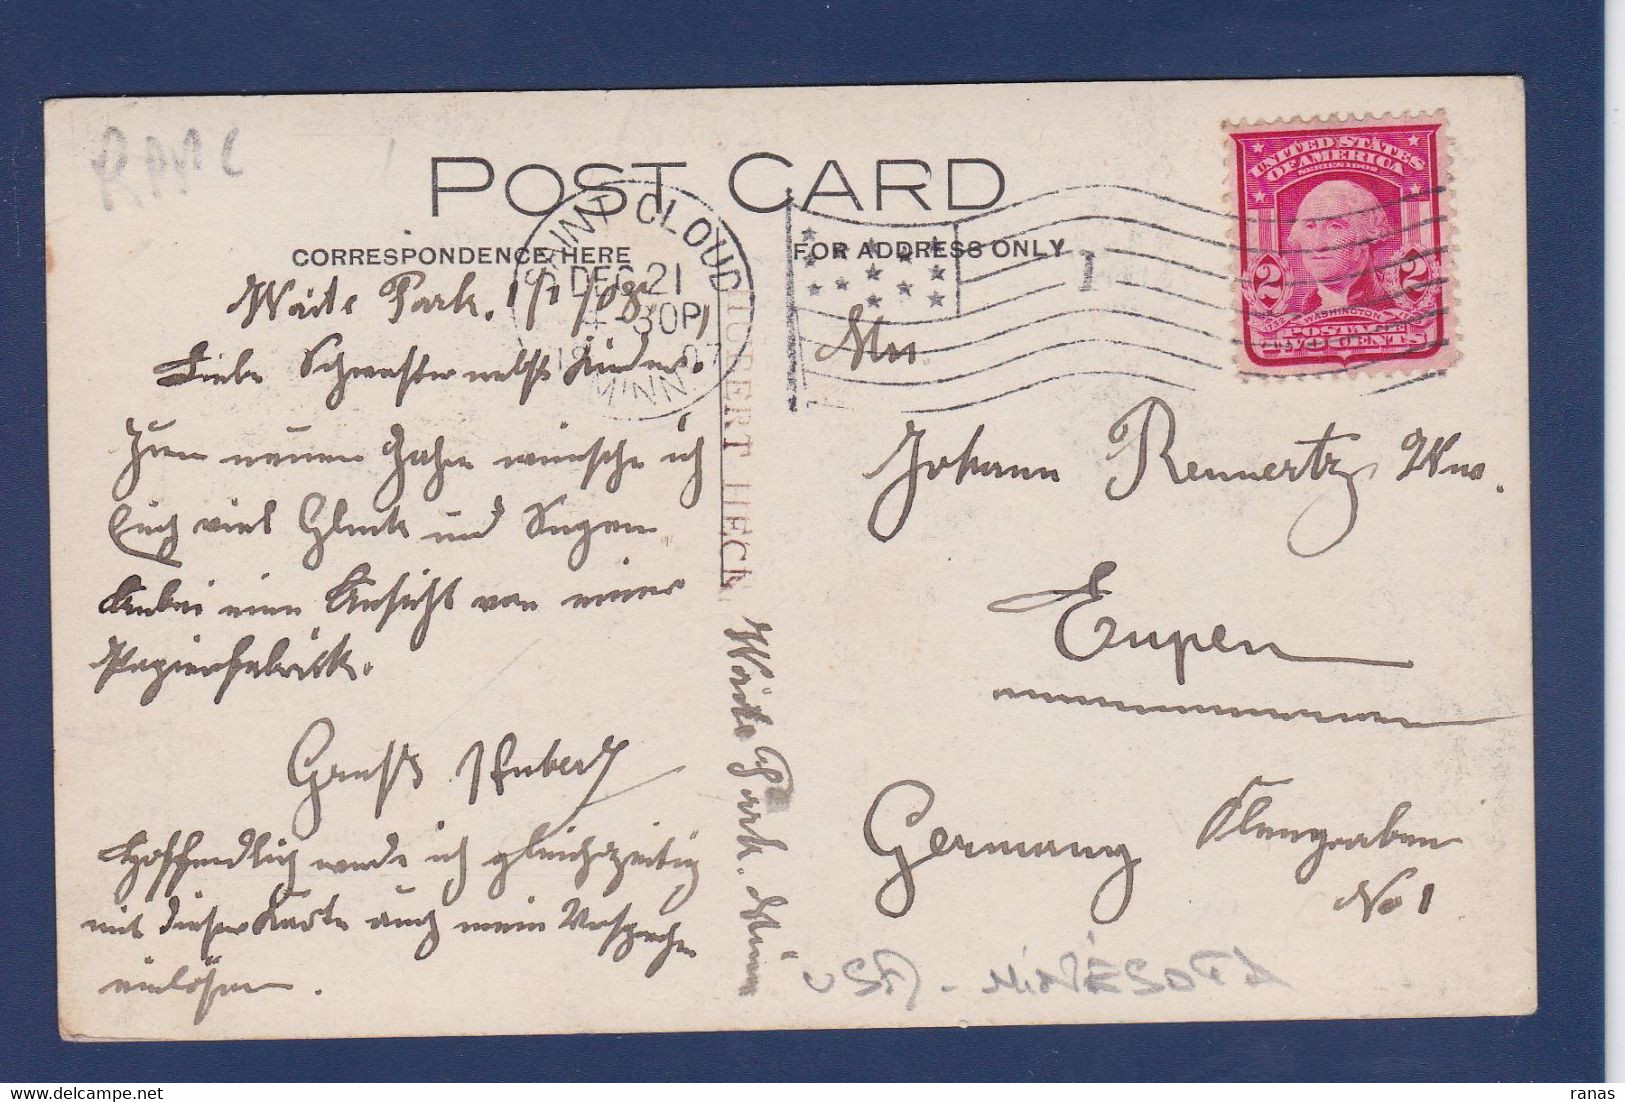 RAAC
POST CARD
CORRESPONDENCE HERE
FOR ADDRESS ONLY
SAINT CLOUD
DEC 21
4 30P
1907
MINN.
1
UNITED STATES
OF AMERICA
SERIES 1902
2 2
WASHINGTON
POSTAGE
TWO CENTS
Waite Park, 1/1 1908
Liebe Schwester nebst Kinder.
Zum neuen Jahre wünsche ich
Euch viel Glück und Segen
Anbei eine Ansicht von einer
Papierfabrik.
Gruß Hubert
Hoffendlich werde ich gleichzeitig
mit dieser Karte auch mein Versprechen
einlösen.
HUBERT HECK
Waite Park. Minn
Johann Rennertz Wwe.
Eupen
Germany Klengraben
No 1
USA - MINÉSOTA
ranas